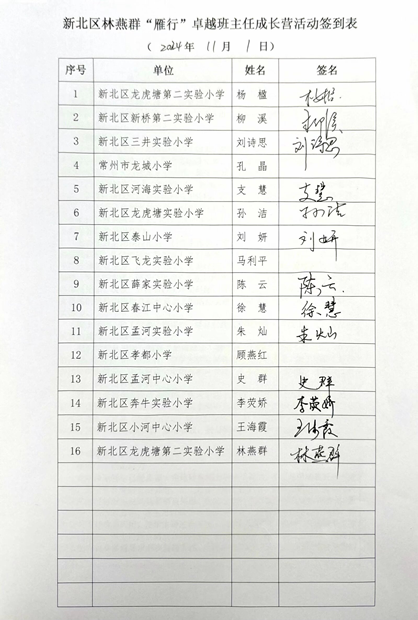 新北区林燕群“雁行”卓越班主任成长营活动签到表
（ 2024 年 11 月 1 日）
序号 单位 姓名 签名
1 新北区龙虎塘第二实验小学 杨楹 杨楹
2 新北区新桥第二实验小学 柳溪 柳溪
3 新北区三井实验小学 刘诗思 刘诗思
4 常州市龙城小学 孔晶
5 新北区河海实验小学 支慧 支慧
6 新北区龙虎塘实验小学 孙洁 孙洁
7 新北区泰山小学 刘妍 刘妍
8 新北区飞龙实验小学 马利平
9 新北区薛家实验小学 陈云 陈云
10 新北区春江中心小学 徐慧 徐慧
11 新北区孟河实验小学 朱灿 朱灿
12 新北区孝都小学 顾燕红
13 新北区孟河中心小学 史群 史群
14 新北区奔牛实验小学 李荧娇 李荧娇
15 新北区小河中心小学 王海霞 王海霞
16 新北区龙虎塘第二实验小学 林燕群 林燕群